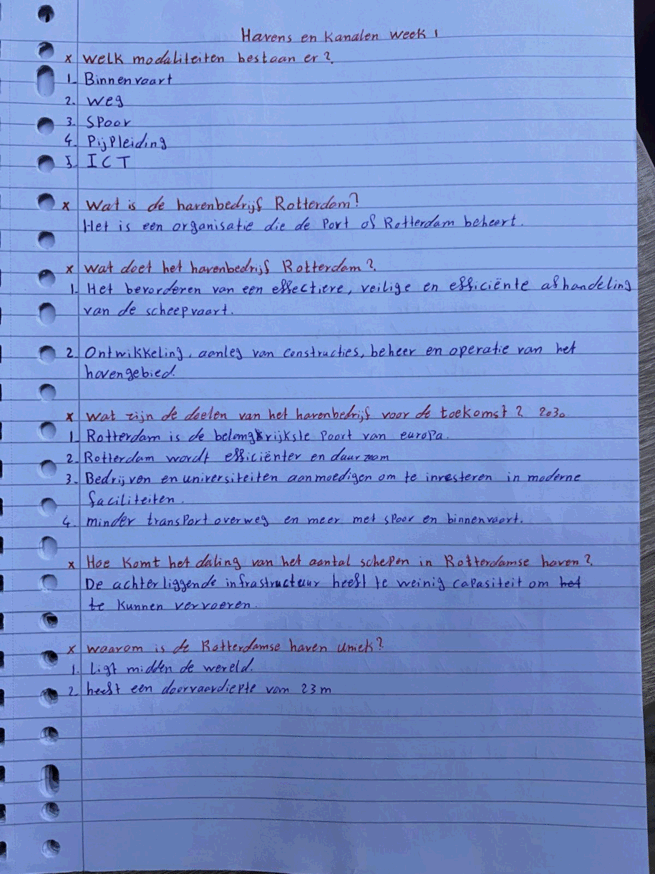 Havens en Kanalen week 1
x welk modaliteiten bestaan er?
1. Binnenvaart
2. weg
3. Spoor
4. Pijpleiding
5. ICT
x Wat is de havenbedrijf Rotterdam?
Het is een organisatie die de Port of Rotterdam beheert.
x wat doet het havenbedrijf Rotterdam?
1. Het bevorderen van een effectieve, veilige en efficiënte afhandeling
van de scheepvaart.
2. Ontwikkeling, aanleg van constructies, beheer en operatie van het
havengebied.
x wat zijn de doelen van het havenbedrijf voor de toekomst? 2030
1. Rotterdam is de belangrijkste Poort van europa.
2. Rotterdam wordt efficiënter en duurzaam
3. Bedrijven en universiteiten aanmoedigen om te investeren in moderne
faciliteiten.
4. minder transport over weg en meer met spoor en binnenvaart.
x Hoe komt het daling van het aantal schepen in Rotterdamse haven?
De achterliggende infrastructuur heeft te weinig capasiteit om het
te kunnen vervoeren.
x waarom is de Rotterdamse haven uniek?
1. Ligt midden de wereld.
2. heeft een doorvaardiepte van 23m